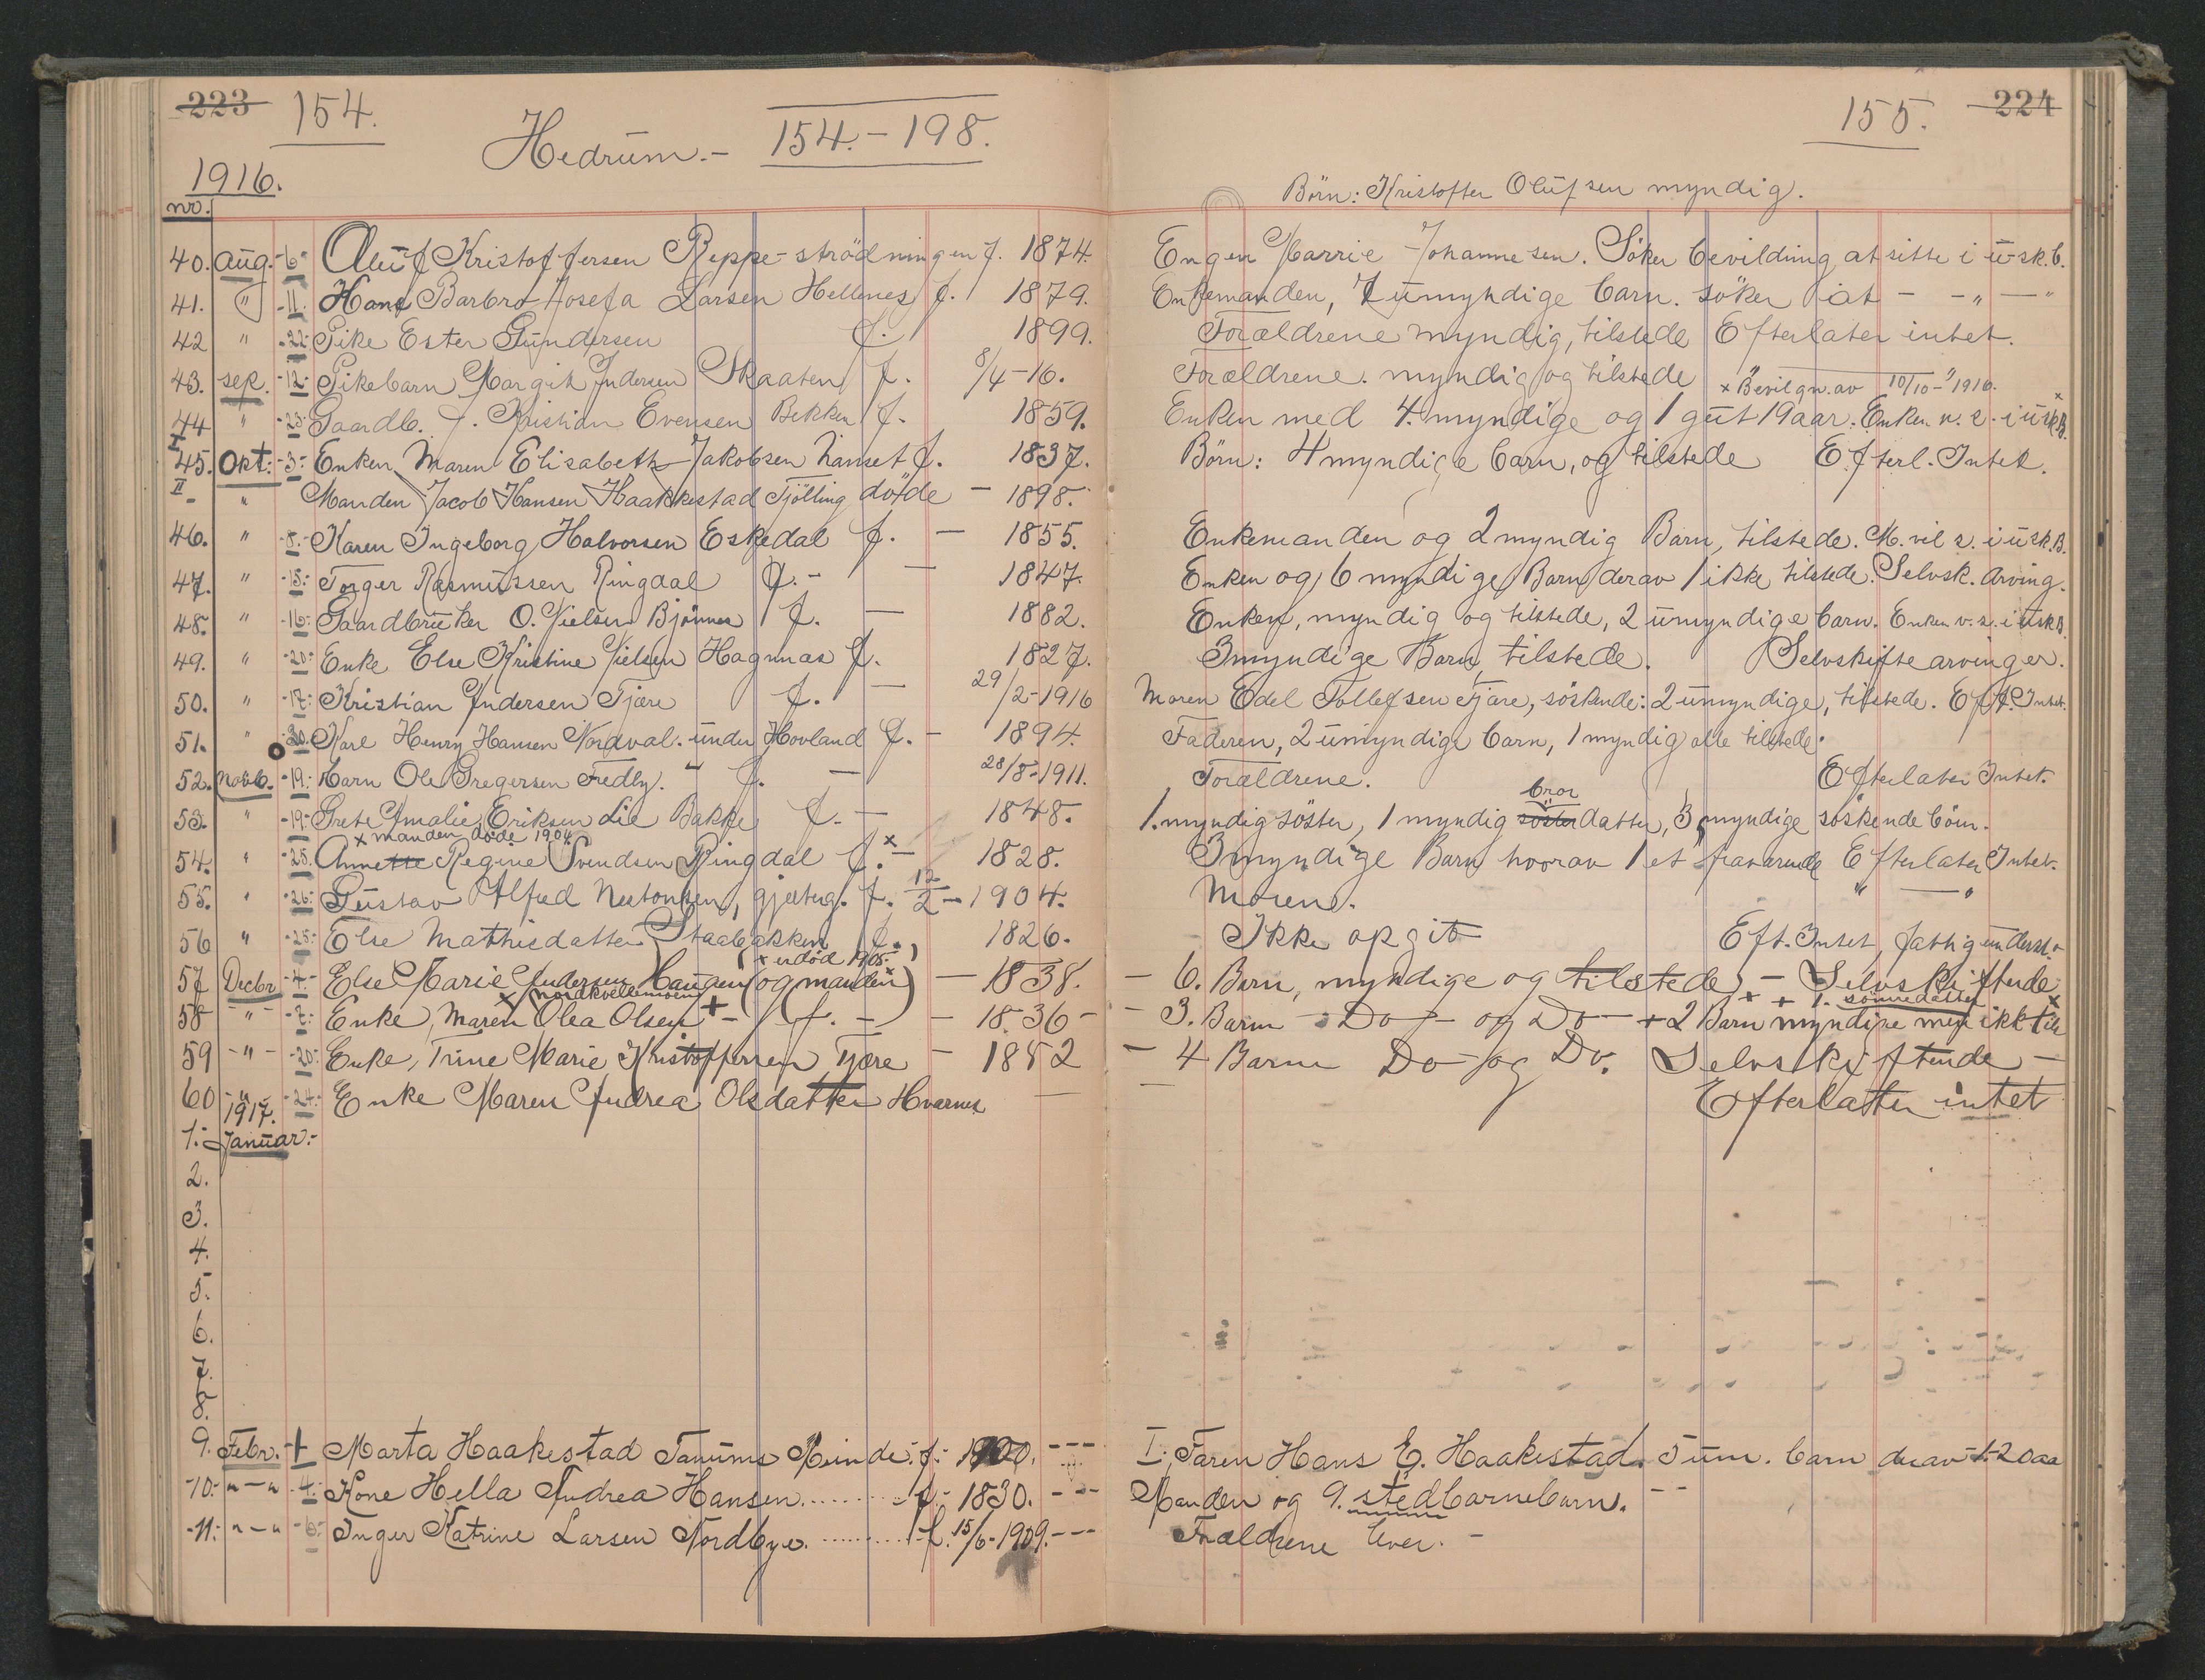 223 154.
Hedrum.- 154.-198.
155. 224
1916.
nr.
Börn: Kristoffer Olufsen myndig.
40. Aug. -6- Oluf Kristoffersen Reppe-strödningen f. 1874. Engen Marrie Johannesen. Söker bevilding at sitte i usk. b.
41. " -11- Kone Barbro Josefa Larsen Hellenes f. 1879. Enkemanden, 7 umyndige barn. söker iat - - " - "
42 " -22- Pike Ester Gundersen f. 1899. Forældrene myndig, tilstede Efterlater intet.
43. sep. -12- Pikebarn Margit Andersen Skaaten f. 8/4-16. Forældrene. myndig og tilstede x Bevilgn. av 10/10-1916.
44 " -23- Gaardb. J. Kristian Evensen Bekken f. 1859. Enken med 4. myndige og 1 gut 19 aar. Enken v. s. i uskB. x
I 45. Okt. -3- Enken Maren Elisabeth Jakobsen Nanset f. 1837. Börn: 4 myndige barn, og tilstede Efterl. Intet.
II - " Manden Jacob Hansen Haakkestad Tjölling döde - 1898.
46. " -8- Karen Ingeborg Halvorsen Eskedal f. - 1855. Enkemanden og 2 myndig Barn, tilstede. M. vil s. i usk. B.
47. " -15- Torger Rasmussen Ringdal f. - - 1847. Enken og 6 myndige Barn derav 1 ikke tilstede. Selvsk. Arving.
48. " -16- Gaardbruker O. Nielsen Bjönnes f. - 1882. Enken, myndig og tilstede, 2 umyndige barn. Enken v. s. i uskB.
49. " -20- Enke Else Kristine Nielsen Hagnnas f. 1827. 3 myndige Barn, tilstede. Selvskiftearvinger.
50. " -17- Kristian Andersen Tjære f. - 29/2-1916 Maren Edel Tollefsen Tjære, söskende: 2 umyndige, tilstede. Eft. Intet.
51. " -30- Karl Henry Hansen Nordval. under Hovland f. - 1894. Faderen, 2 umyndige barn, 1 myndig alle tilstede.
52. Novb. -19- Barn Ole Gregersen Fredly. " f. - 28/8-1911. Forældrene. Efterlater Intet.
bror
53. " -19- Grete Amalie Eriksen Lie Bakke f. - 1848. 1. myndig söster, 1 myndig söster datter, 3 myndige söskende börn.
x manden döde 1904
54. " -25- Annette Regine Svendsen Ringdal f. x - 1828. 3 myndige Barn hvorav 1 et fraværende Efterlater Intet.
55. " -26- Gustav Alfred Neutonsen, gjæterg. f. 12/2-1904. Moren. " - "
56 " -25- Else Mathisdatter Staabakken f. 1826. Ikke opgit Eft. Intet, fattigunderst.
x er död 1905.
57 Decbr -4- Else Marie Andersen Haugen (og manden x) - 1838. - 6. Barn, myndige og tilstede - Selvskiftende
x nordkvellemoen x + 1. sönnedatter
58 - " - -7- Enke, Maren Olea Olsen + - f. - - 1836 - - 3. Barn - Do - og Do - + 2 Barn myndige men ikk til x
59 - " - -20- Enke, Trine Marie Kristoffersen Tjære - 1852 - 4 Barn Do - og Do. Selvskiftende -
60 - " - -24- Enke Maren Andrea Olsdatter Hvarnes - Efterlatter intet
1917.
1. Januar.-
2.
3.
4.
5.
6.
7.
8.
9. Febr. -1 Marta Haakestad Tanums Minde. f. 1900. --- I. Faren Hans E. Haakestad. 5 um. barn derav 1-20 aa
-10- "-" -4- Kone Hella Andrea Hansen.......... f. 1830. --- Manden og 9. stedbarnebarn. --
-11- "-" -6- Inger Katrine Larsen Nordbye. .......... f. 15/6-1909. --- Forældrene lever. -